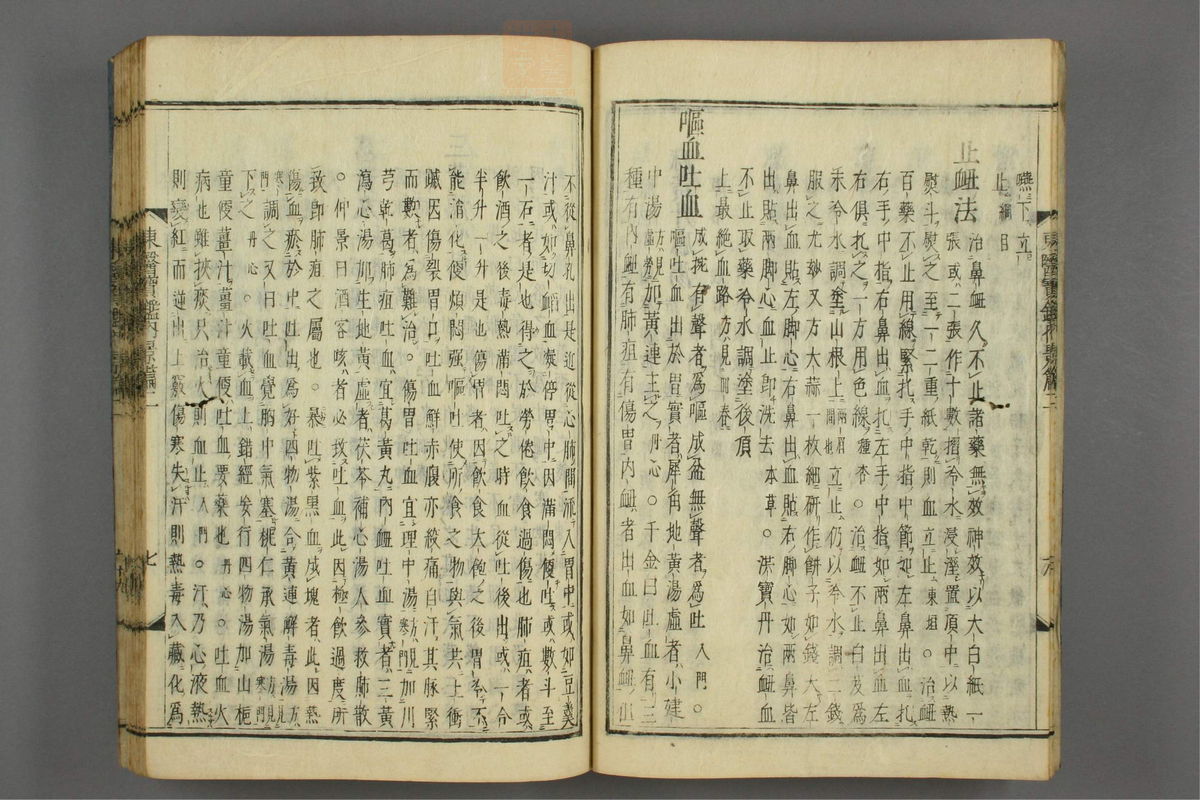 嚥下立
止綱目
止衄法 治鼻衄久不止諸藥無效神效以大白紙一
張或二張作十數摺冷水浸溼置頂中以熱
熨斗熨之至一二重紙乾則血立止東垣○治衄
百藥不止用線緊扎手中指中節如左鼻出血扎
右手中指右鼻出血扎左手中指如兩鼻出血左
右俱扎之一方用色線種杏○治衄不止白芨爲
末冷水調塗山根上兩眉間也立止仍以冷水調二錢
服之尤妙又方大蒜一枚細研作餠子如錢大左
鼻出血貼左脚心右鼻出血貼右脚心如兩鼻皆
出貼兩脚心血止卽洗去本草○洪寶丹治衄血
不止取藥冷水調塗後頂
上最絶血路方見回春
嘔血吐血 成椀有聲者爲嘔成盆無聲者爲吐入門○
嘔吐血出於胃實者犀角地黃湯虛者小建
中湯方見虛勞加黃連主之丹心○千金曰吐血有三
種有內衄有肺疽有傷胃內衄者出血如鼻衄但
不從鼻孔出是近從心肺間派入胃中或如豆羹
汁或如切衃血凝停胃中因滿悶便吐或數斗至
一石者是也得之於勞倦飮食過傷也肺疽者或
飮酒之後毒熱滿悶吐之時血從吐後出或一合
半升一升是也傷胃者因飮食大飽之後胃冷不
能消化便煩悶强嘔吐使所食之物與氣共上衝
蹴因傷裂胃口吐血鮮赤腹亦絞痛自汗其脉緊
而數者爲難治○傷胃吐血宜理中湯方見寒門加川
芎乾葛肺疽吐血宜葛黃丸內衄血實者三黃
瀉心湯加生地黃虛者茯苓補心湯人參救肺散
○仲景曰酒客咳者必致吐血此因極飮過度所
致卽肺疽之屬也○暴吐紫黑血成塊者此因熱
傷血瘀於中吐出爲好四物湯合黃連解毒湯方見
寒門調之又曰吐血覺胸中氣塞桃仁承氣湯方見寒門
下之丹心○火載血上錯經妄行四物湯加山梔
童便薑汁薑汁童便吐血要藥也丹心○吐血火
病也雖挾痰只治火則血止入門○汗乃心液熱
則變紅而逆出上竅傷寒失汗則熱毒入藏化爲
東醫寶鑑內景篇二
七